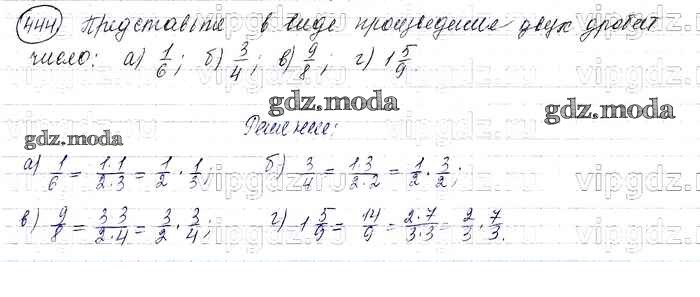 444 Представьте в виде произведения двух дробей
число: а) 1/6; б) 3/4; в) 9/8; г) 1 5/9.
gdz.moda
gdz.moda
gdz.moda
Решение:
а) 1/6 = 1·1/2·3 = 1/2 · 1/3; б) 3/4 = 1·3/2·2 = 1/2 · 3/2;
в) 9/8 = 3·3/2·4 = 3/2 · 3/4; г) 1 5/9 = 14/9 = 2·7/3·3 = 2/3 · 7/3.